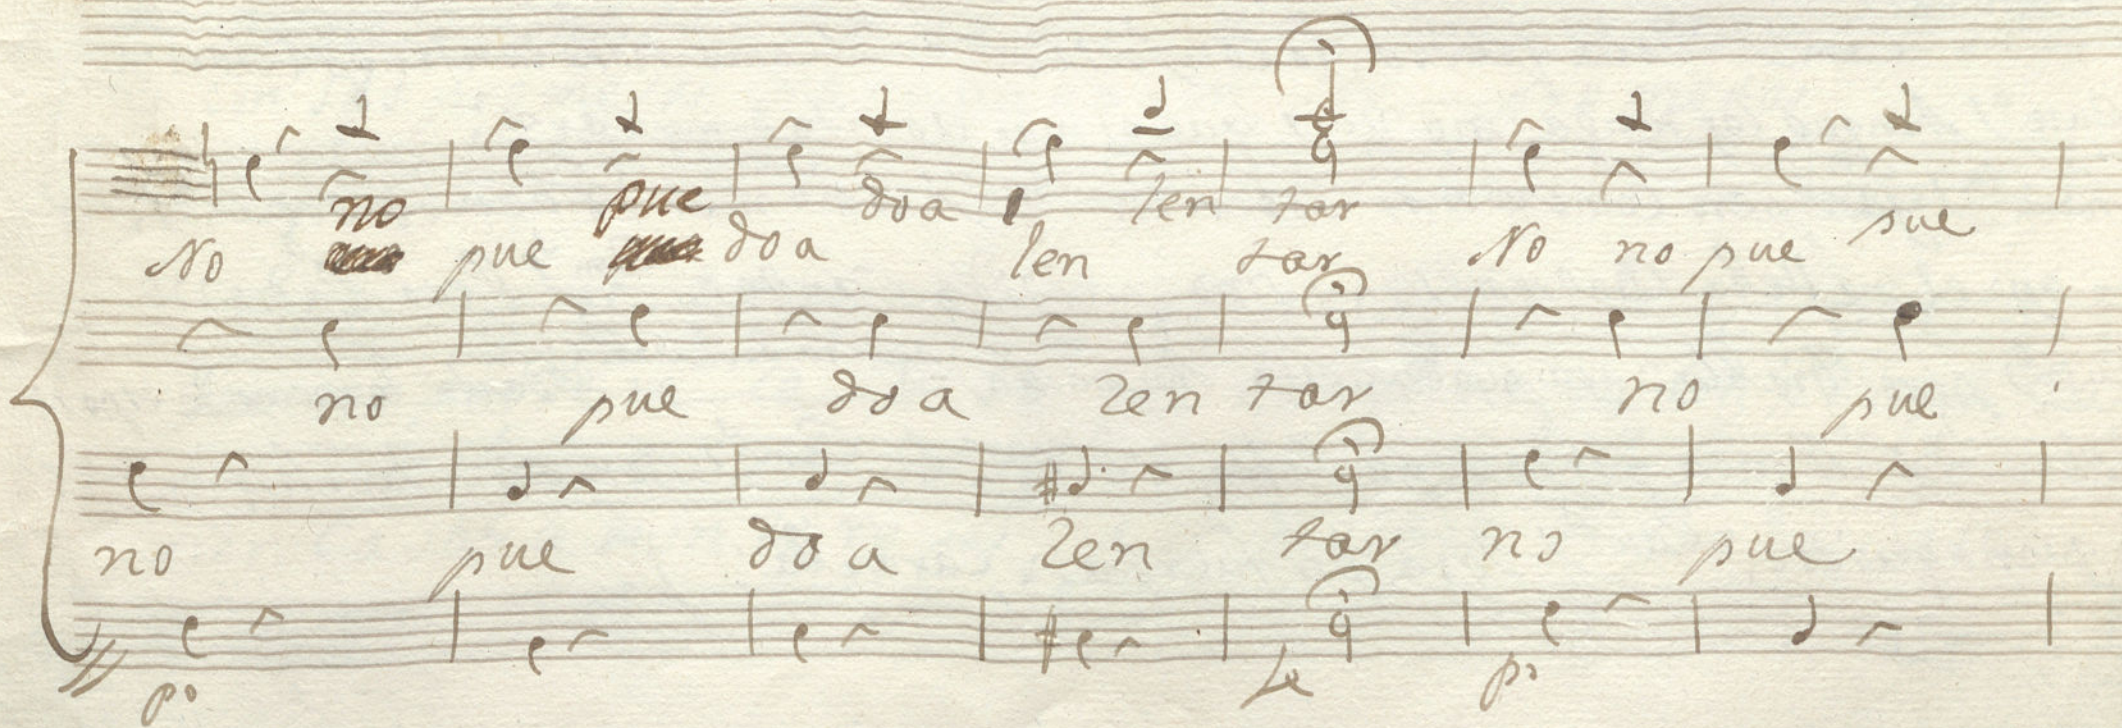 no pue doa len tar
No pue doa len tar No no pue pue
no pue doa len tar no pue
no pue doa len tar no pue
po po